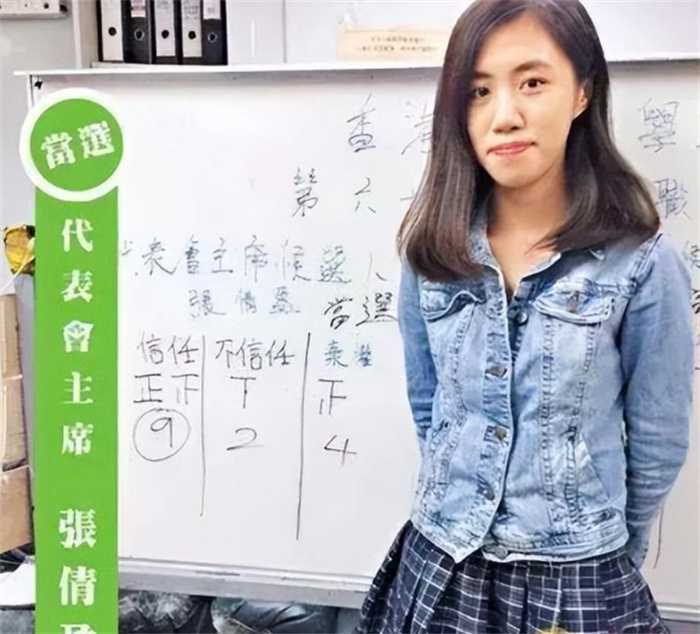 當選
代表會主席 張倩
香港 學
第六 職
表會主席候選人
張倩盈 當選
信任 不信任 棄權
正 正 丅 正
9 2 4